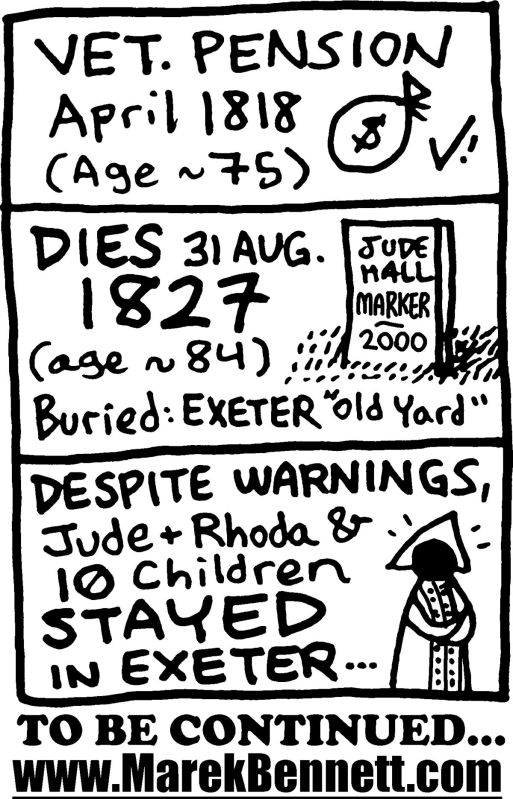 VET. PENSION
April 1818
(Age ~75)
$
✓!
DIES 31 AUG.
1827
(age ~84)
Buried: EXETER "old Yard"
JUDE
HALL
MARKER
2000
DESPITE WARNINGS,
Jude + Rhoda &
10 Children
STAYED
IN EXETER...
TO BE CONTINUED...
www.MarekBennett.com